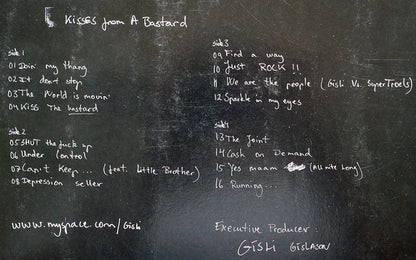 Kisses from A Bastard
side 1
01 Doin' my thang
02 It don't stop
03 The World is movin'
04 Kiss The bastard
side 2
05 SHUT the fuck up
06 Under Control
07 Can't Keep... (feat. Little Brother)
08 Depression seller
www.myspace.com/Gisli
side 3
09 Find a way
10 Just ROCK!!
11 We are the people (Gisli Vs. SuperTroels)
12 Sparkle in my eyes
side 4
13 The Joint
14 Cash on Demand
15 Yes maam (All nite long)
16 Running...
Executive Producer:
Gisli Gislason